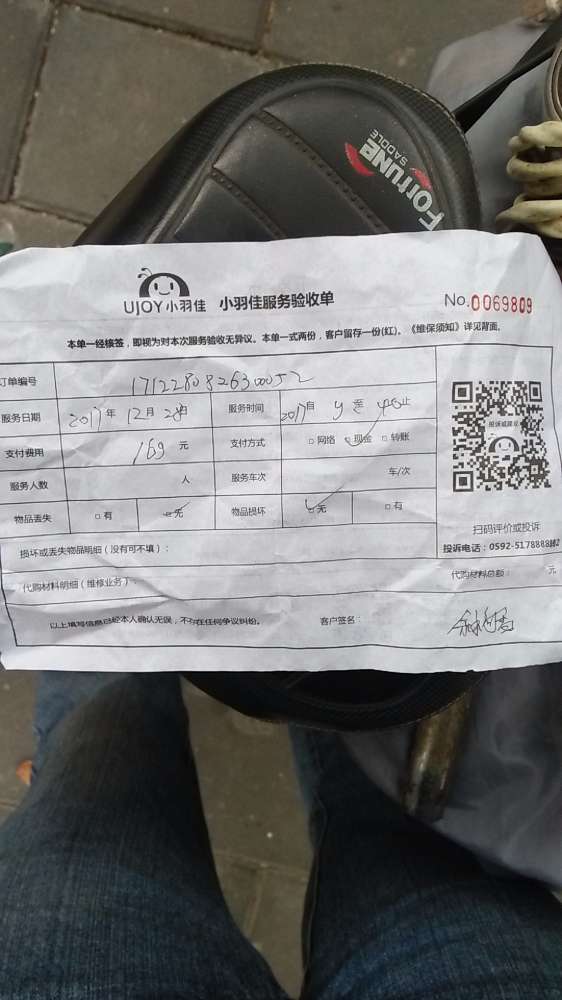 FORTUNE
SADDLE
UJOY小羽佳 小羽佳服务验收单 No.0069809
本单一经核签，即视为对本次服务验收无异议。本单一式两份，客户留存一份(红)。《维保须知》详见背面。
订单编号
服务日期 2017年12月28日 服务时间 2017自 9 至 止
支付费用 169 元 支付方式 □网络 □现金 □转账
服务人数 人 服务车次 车/次
物品丢失 □有 □无 物品损坏 □无 □有
投诉或建议
扫码评价或投诉
损坏或丢失物品明细（没有可不填）：
投诉电话：0592-5178888
代购材料明细（维修业务）： 代购材料总额： 元
以上填写信息已经本人确认无误，不存在任何争议纠纷。 客户签名：